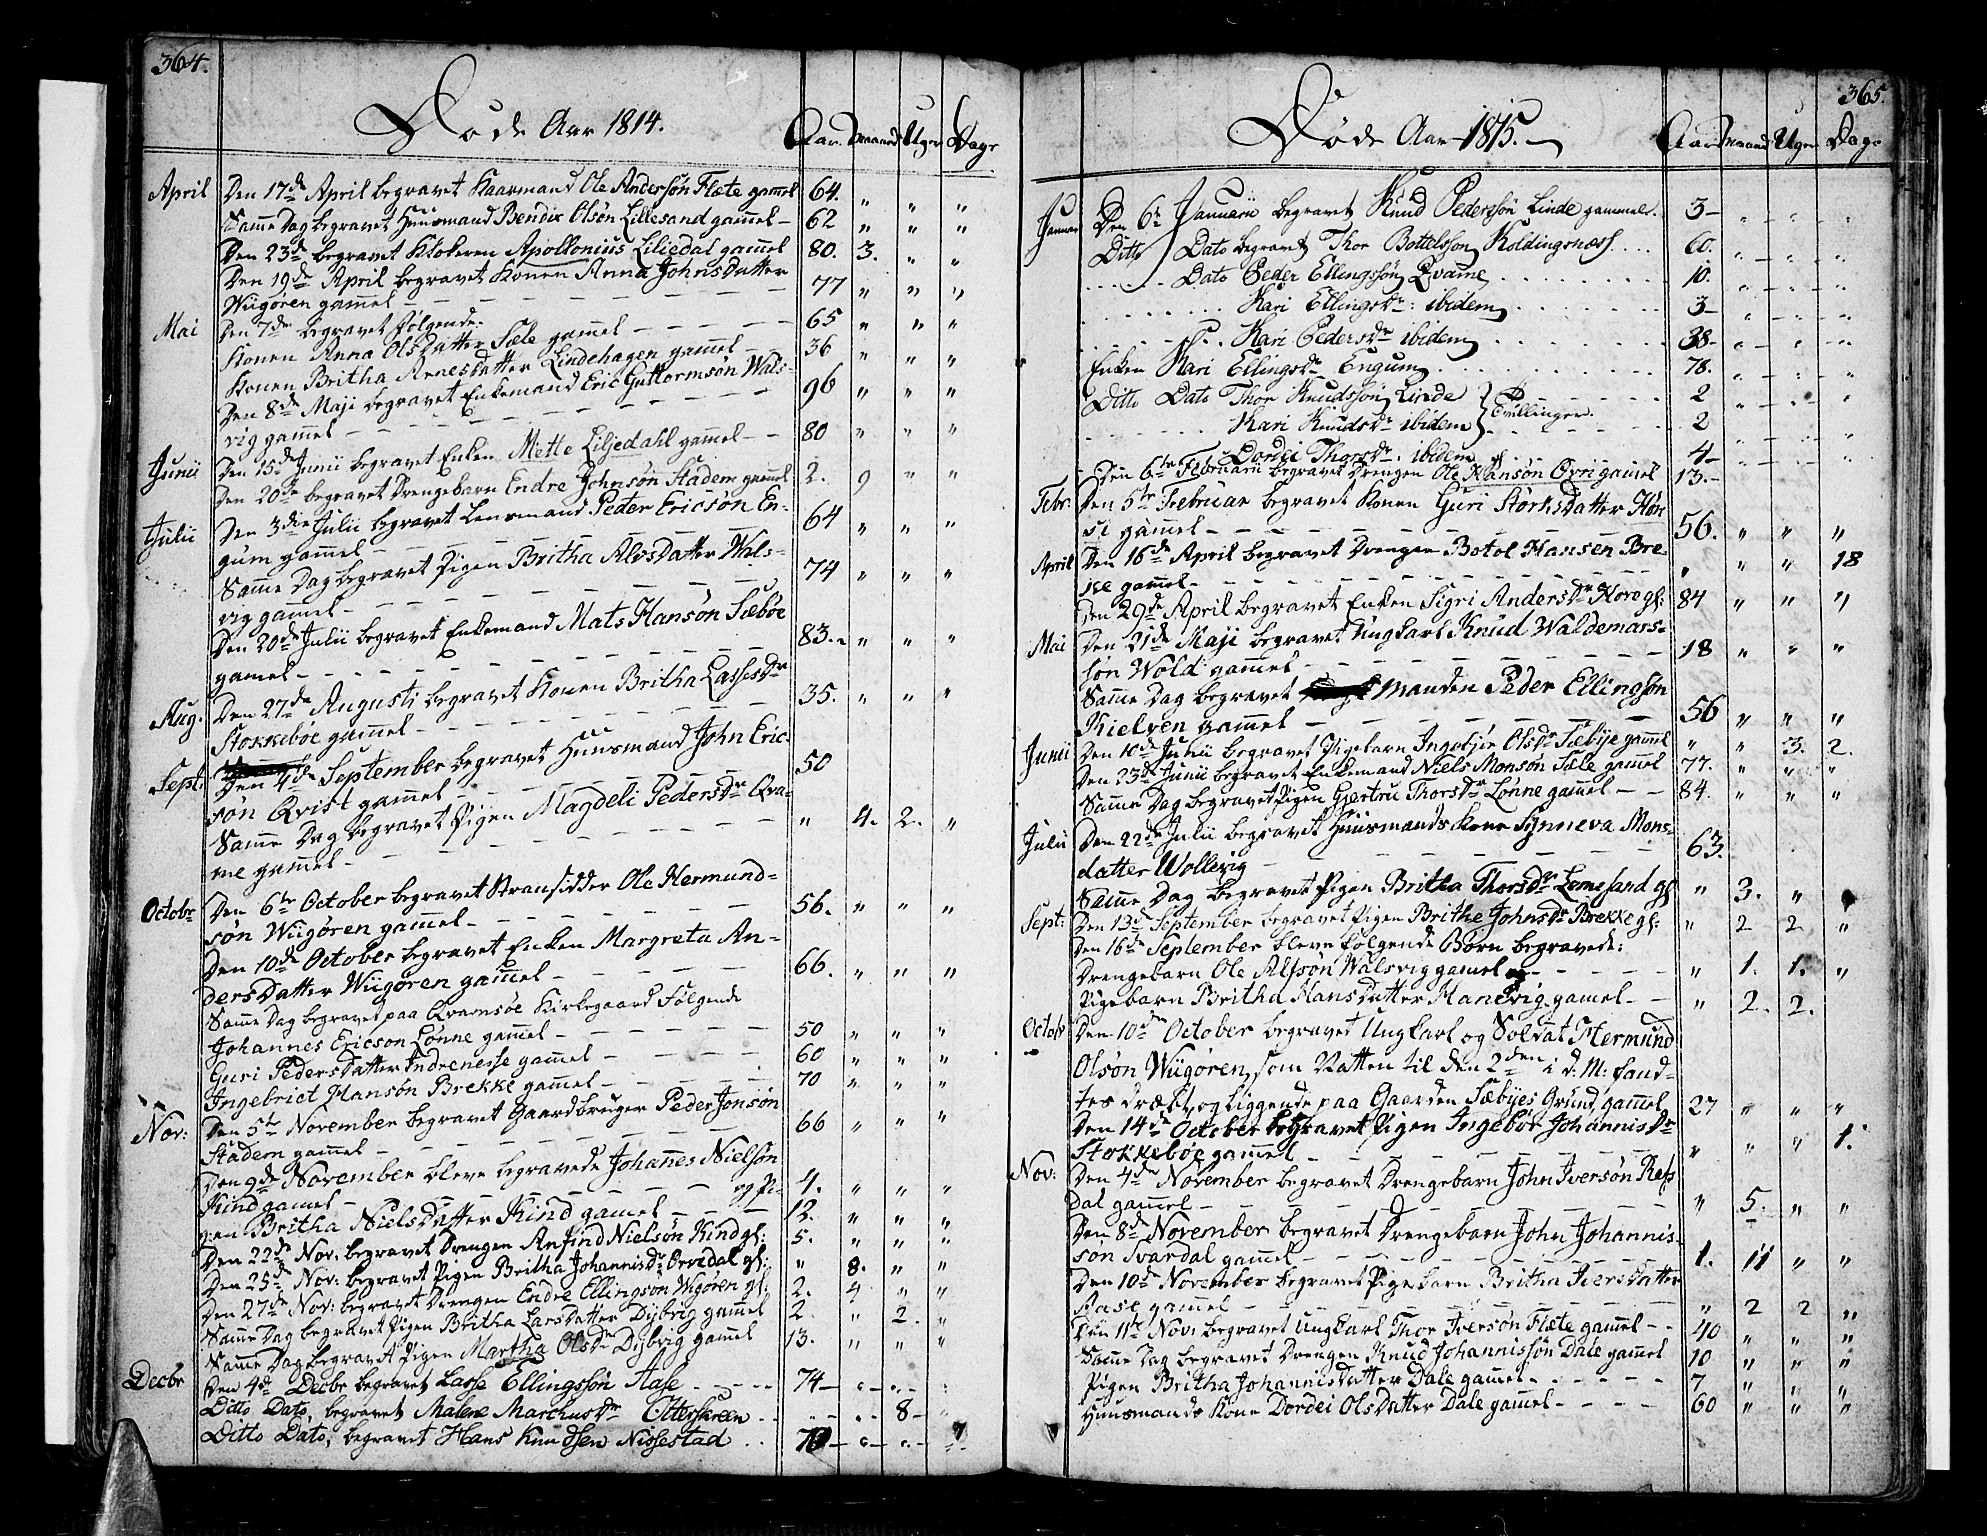 364.
Døde Aar 1814.
Aar. Maaned Uger Dage
April Den 17de April begravet Kaarmand Ole Andersøn Flete gamel 64. " " "
Samme Dag begravet Huusmand Bendix Olsøn Lillesand gammel – 62 " " "
Den 23de begravet Klokeren Apollonius Liliedal gammel 80. 3. " "
Den 19de April begravet Konen Anna Johnsdatter
Wiigøren gammel – – – 77 " " "
Mai Den 7de begravet følgende:
Konen Anna Olsdatter Sæle gammel – – – 65 " " "
Konen Britha Arnesdatter Lindehagen gammel – 36 " " "
Den 8de Maji begravet Enkemand Eric Guttormsøn Wals-
vig gammel – – – 96 " " "
Junii Den 15de Junii begravet Enken Mette Liljedahl gamel – – 80 " " "
Den 20de begravet Drengebarn Endre Johnsøn Stadem gamel 2. 9 " "
Julii Den 3die Julii begravet Lensmand Peder Ericsøn En-
gum gammel – – – 64 " " "
Samme Dag begravet Pigen Britha Alvsdatter Wals-
vig gammel – – – 74 " " "
Den 20de Julii begravet Enkemand Mats Hansøn Sæbøe
gamel – – – 83. " " "
Aug. Den 27de Augusti begravet Konen Britha Lassesdr
Stokkebøe gammel – – – 35. " " "
Sept: Den 4de September begravet Huusmand John Eric-
søn Qvist gammel – – 50
Samme Dag begravet Pigen Magdeli Pedersdr Qva-
me gammel – – – " 4. 2. "
Octobr Den 6te October begravet Stransidder Ole Hermund-
søn Wiigøren gammel – 56. " " "
Den 10de October begravet Enken Margreta An-
dersdatter Wiigøren gammel – – – 66. " " "
Samme Dag begravet paa Qvamsøe Kirkegaard Følgende
Johannes Ericson Lønne gammel – – – 50 " " "
Guri Pedersdatter Indrenesse gammel – – – 60 " " "
Ingebrict Hansøn Brekke gammel – – – 70 " " "
Nov: Den 5te November begravet Gaardbruger Peder Jonsøn
Stadem gammel – – – 66 " " "
Den 9de November bleve begravede Johannes Nielsøn
Kind gamel – – – og Pi- 4. " " "
gen Britha Nielsdatter Kind gamel – – – 12. " " "
Den 22de Nov: begravet Drengen Anfind Nielsøn Kind gl: 5. " " "
Den 25de Nov: begravet Pigen Britha Johannisdr Orredal gl: " 8. " "
Den 27de Nov: begravet Drengen Endre Ellingsøn Wigøren gl: 2. 4 " "
Samme Dag begravet Pigen Britha Larsdatter Dybvig gammel 2. " 2. "
Samme Dag begravet Pigen Martha Olsdr Dybvig gammel 13. " " "
Decbr Den 4de Decbr begravet Lasse Ellingssøn Aase 74 –
Ditto Dato, begravet Malene Marchusdr Ottersteen 8 –
Ditto Dato, begravet Hans Knudsen Nissestad
365.
Døde Aar 1815.
Aar Maaned Uger Dage
Januar Den 6te Januarii begravet Knud Pederssøn Linde gammel. 3 –
Ditto Dato begravet Thor Bottelssøn Holdingsnæss 60.
Dato Peder Ellingssøn Qvame 10.
Kari Ellingsdr: ibidem 3 –
Kari Pedersdr ibidem 38 –
Enken Kari Ellingsdr Engum 78.
Ditto Dato Thor Knudssøn Linde 2
Kari Knudsdr ibidem } Tvillinger. 2
Dordei Thorsdr: ibidem 4 –
Den 6te Februarii begravet Drengen Ole Hansøn Qvri gamel 13. –
Febr: Den 5te Februar begravet Konen Guri Størksdatter Høn
si gammel – – – 56. " " "
April Den 16de April begravet Drengen Botol Hansen Bre-
ke gamel – – – " " " 18
Den 29de April begravet Enken Sigri Andersdr Horo gl: 84 " " "
Mai Den 21de Maji begravet Ungkarl Knud Waldemars-
søn Wold gammel – – – 18 " " "
Samme Dag begravet Manden Peder Ellingsøn
Kielven gammel – – – 56 " " "
Junii Den 10de Junii begravet Pigebarn Ingebjør Olsdr Sæbye gamel " " 3. 2.
Den 23de Junii begravet Enkemand Niels Monsøn Sæle gamel 77. " " "
Samme Dag begravet Pigen Gjertru Thorsdr Lønne gamel – – 84. " " "
Julii Den 22de Julii begravet Huusmands Kone Synneva Mons-
datter Wollevig – – – 63.
Samme Dag begravet Pigen Britha Thorsdr Lemesand gl " 3. "
Sept: Den 13de September begravet Pigen Brithe Johnsdr Brekke gl: " 2 2 "
Den 16te September bleve følgende Børn begravede:
Drengebarn Ole Alfsøn Walsvig gamel og – – – " 1. 1. "
Pigebarn Britha Hansdatter Hanevig gamel – – " 2. 2.
Octobr Den 10de October begravet Ungkarl og Soldat Hermund
Olsøn Wiigøren, som Natten til den 2den i d: M: fand-
tes dræbt og liggende paa Gaarden Sæbyes Grund, gammel 27 " " "
Den 14de October begravet Pigen Ingebor Johannisdr
Stokkebøe gammel – – – " " " 1.
Nov: Den 4de November begravet Drengebarn John Iversøn Refs
dal gammel – – – " 5. " "
Den 8de November begravet Drengebarn John Johannis-
søn Svardal gammel – – – 1. 11 " "
Den 10de November begravet Pigebarn Britha Iversdatter
Aase gammel – – – " 2 2 "
Den 11te Nov: begravet Ungkarl Thor Iversøn Flete gammel – – 40 " " "
Samme Dag begravet Drengen Knud Johannissøn Dale gammel 10 " " "
Pigen Britha Johannisdatter Dale gamel – – – 7 " " "
Huusmands Kone Dordei Olsdatter Dale gamel – – – 60 " " "